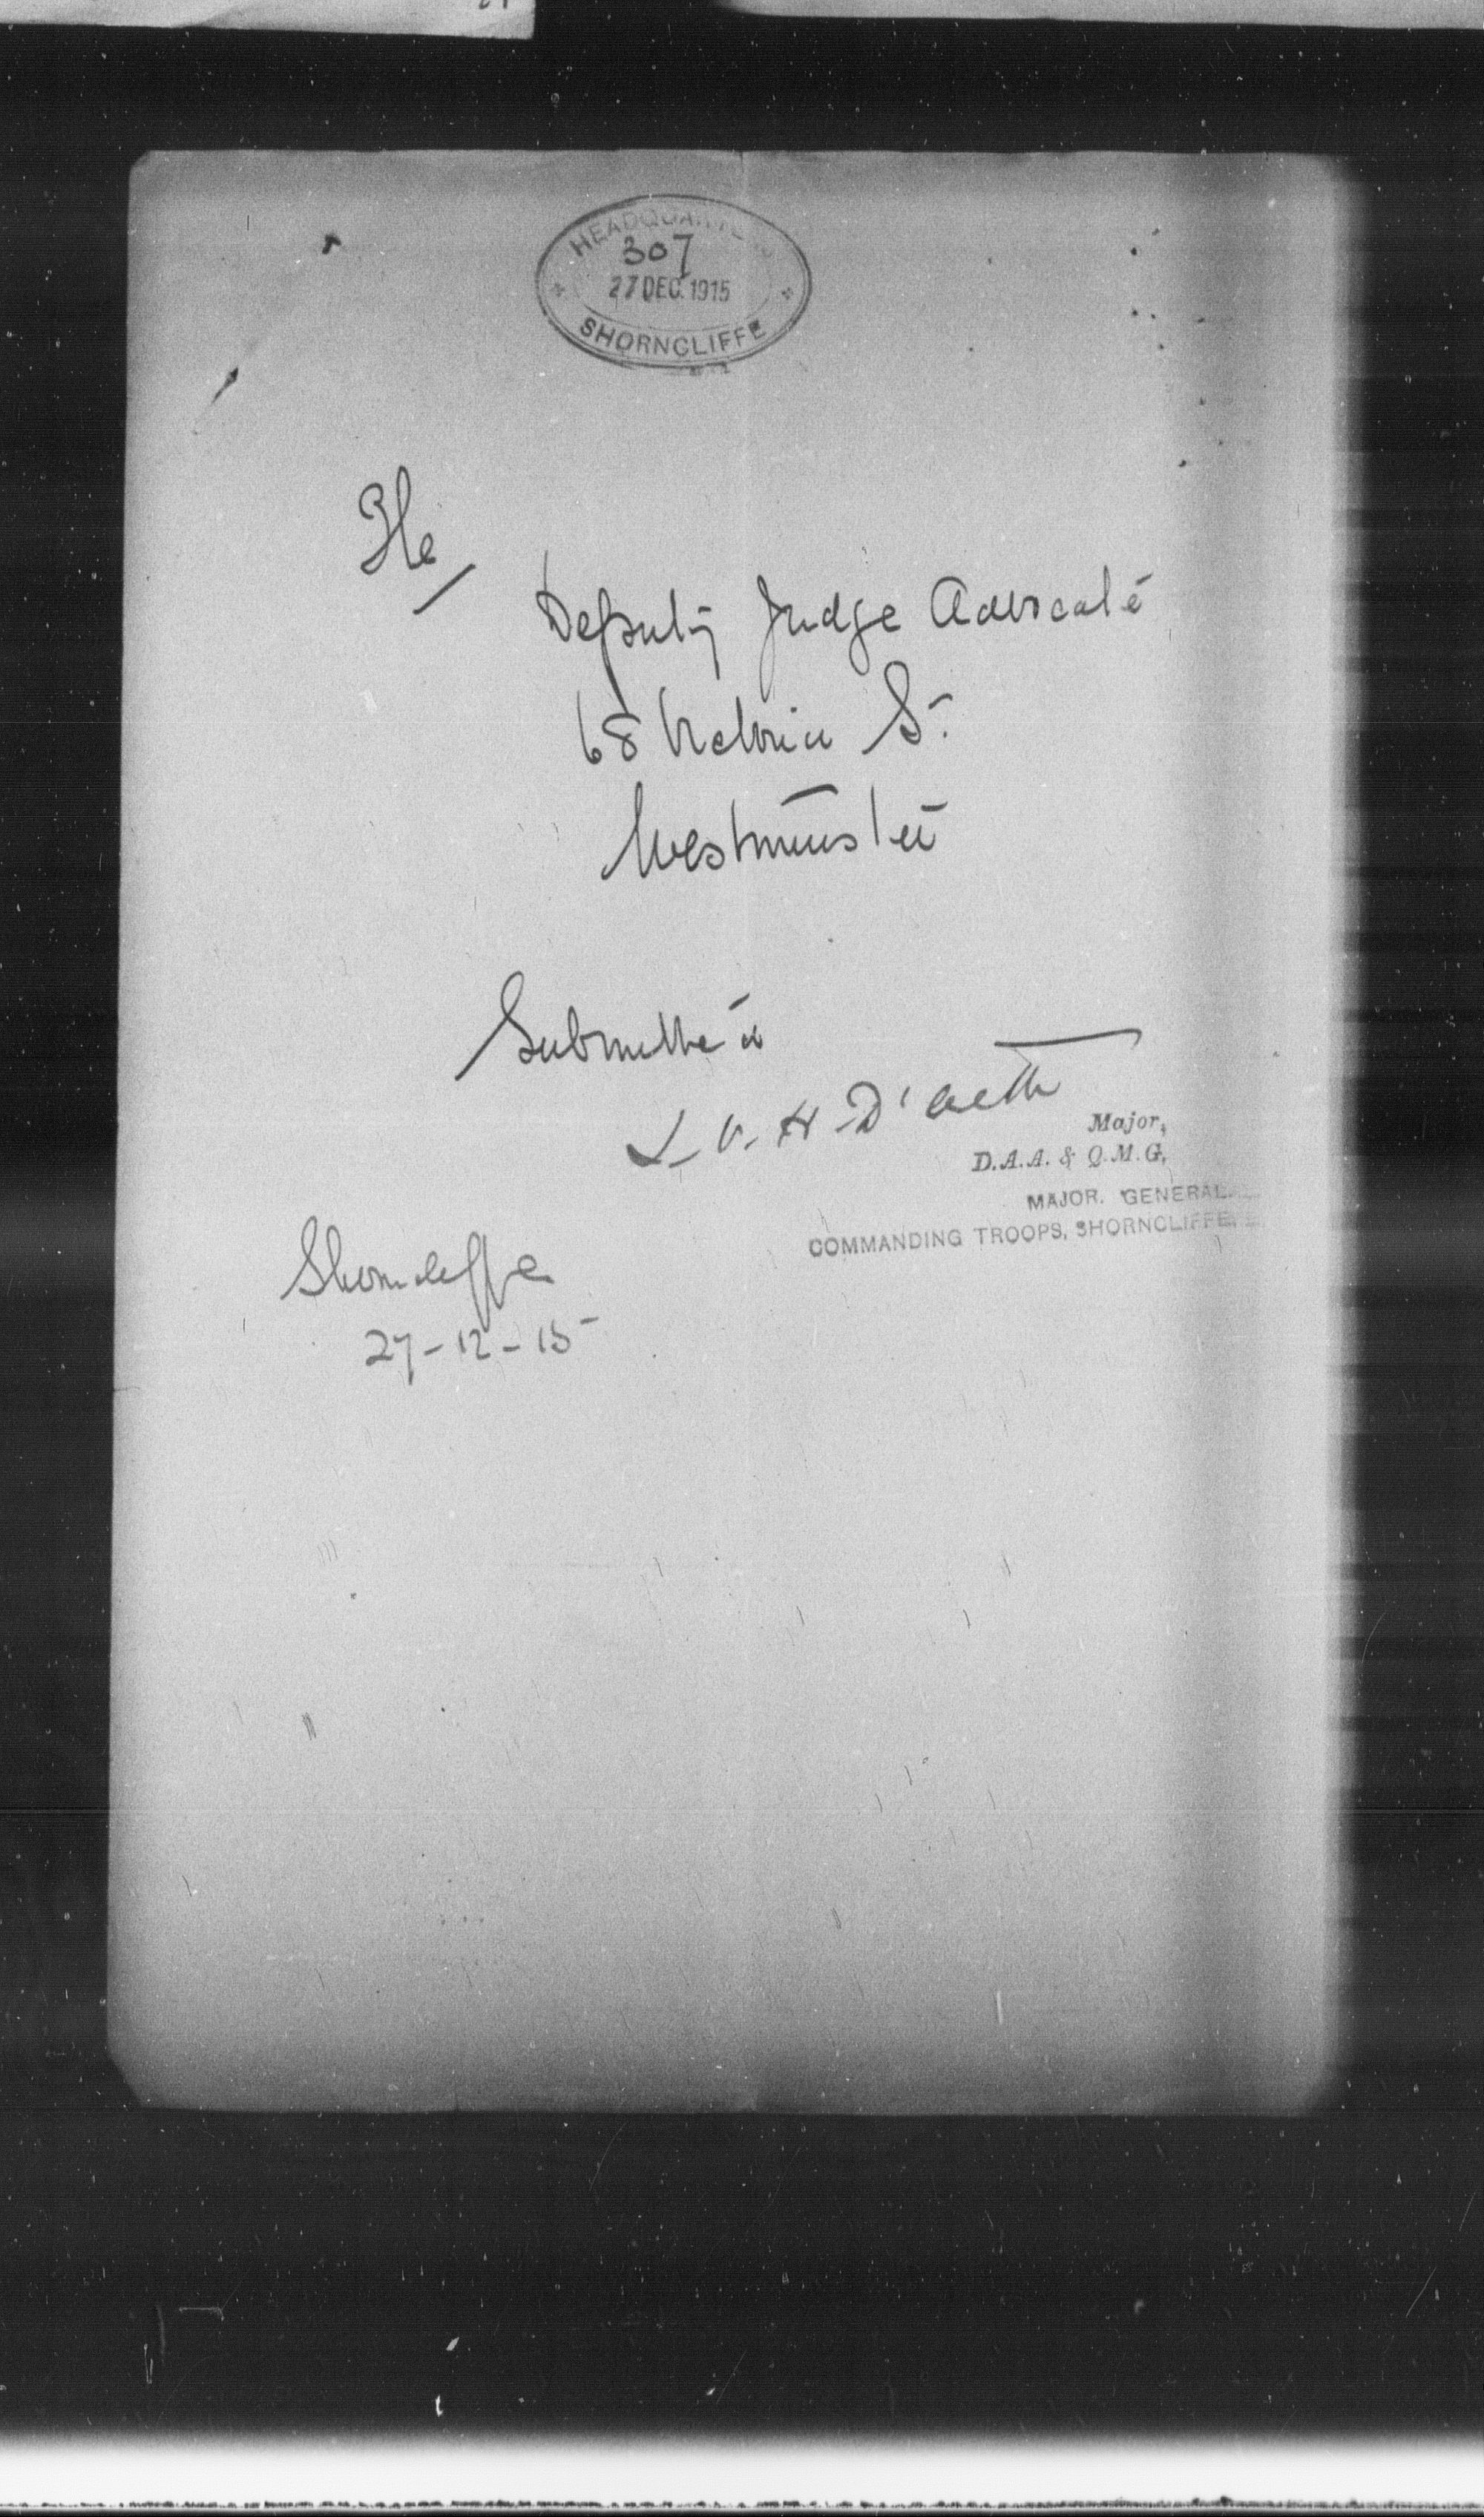 HEADQUARTERS
307
27 DEC. 1915
SHORNCLIFFE
The
Deputy Judge Advocate
68 Victoria St.
Westminster
Submitted
L. V. H. D'Aeth
Major,
D.A.A. & Q.M.G,
MAJOR. GENERAL.
COMMANDING TROOPS, SHORNCLIFFE.
Shorncliffe
27-12-15